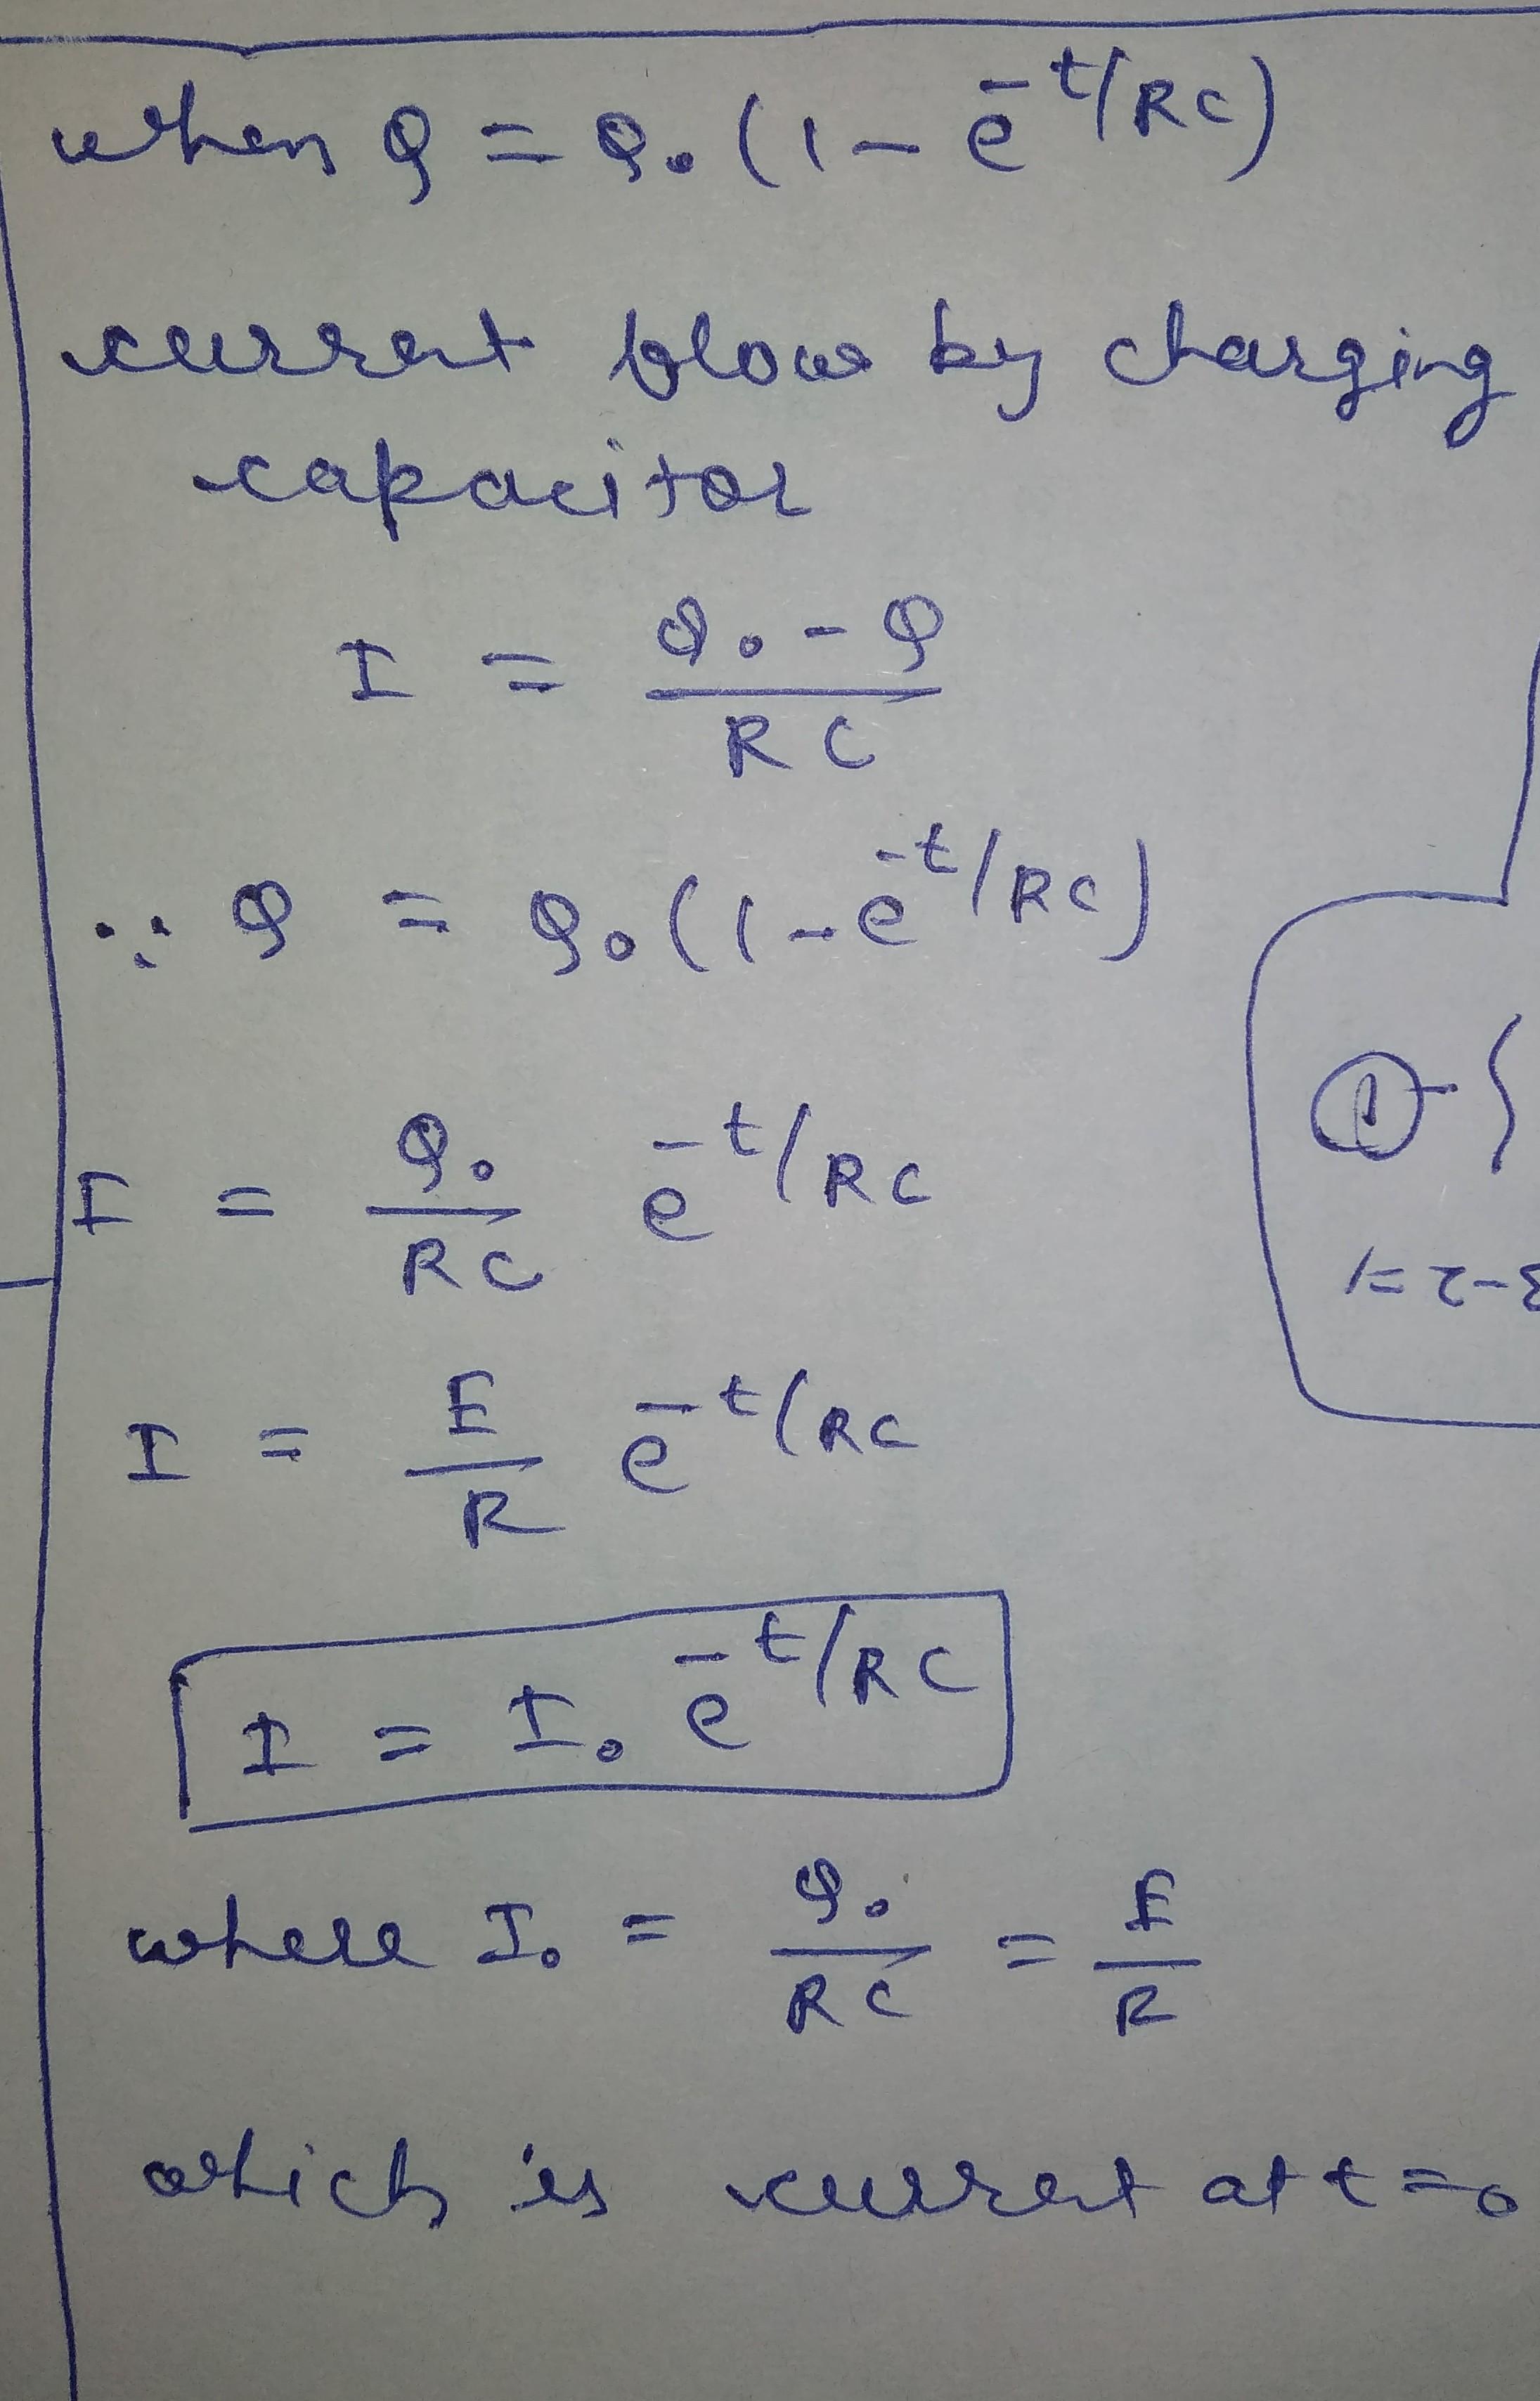 when Q = Q₀ (1 - e^-t/RC)
current flow by charging
capacitor
I = Q₀ - Q / RC
∵ Q = Q₀ (1 - e^-t/RC)
I = Q₀/RC e^-t/RC
I = E/R e^-t/RC
I = I₀ e^-t/RC
where I₀ = Q₀/RC = E/R
which is current at t=0